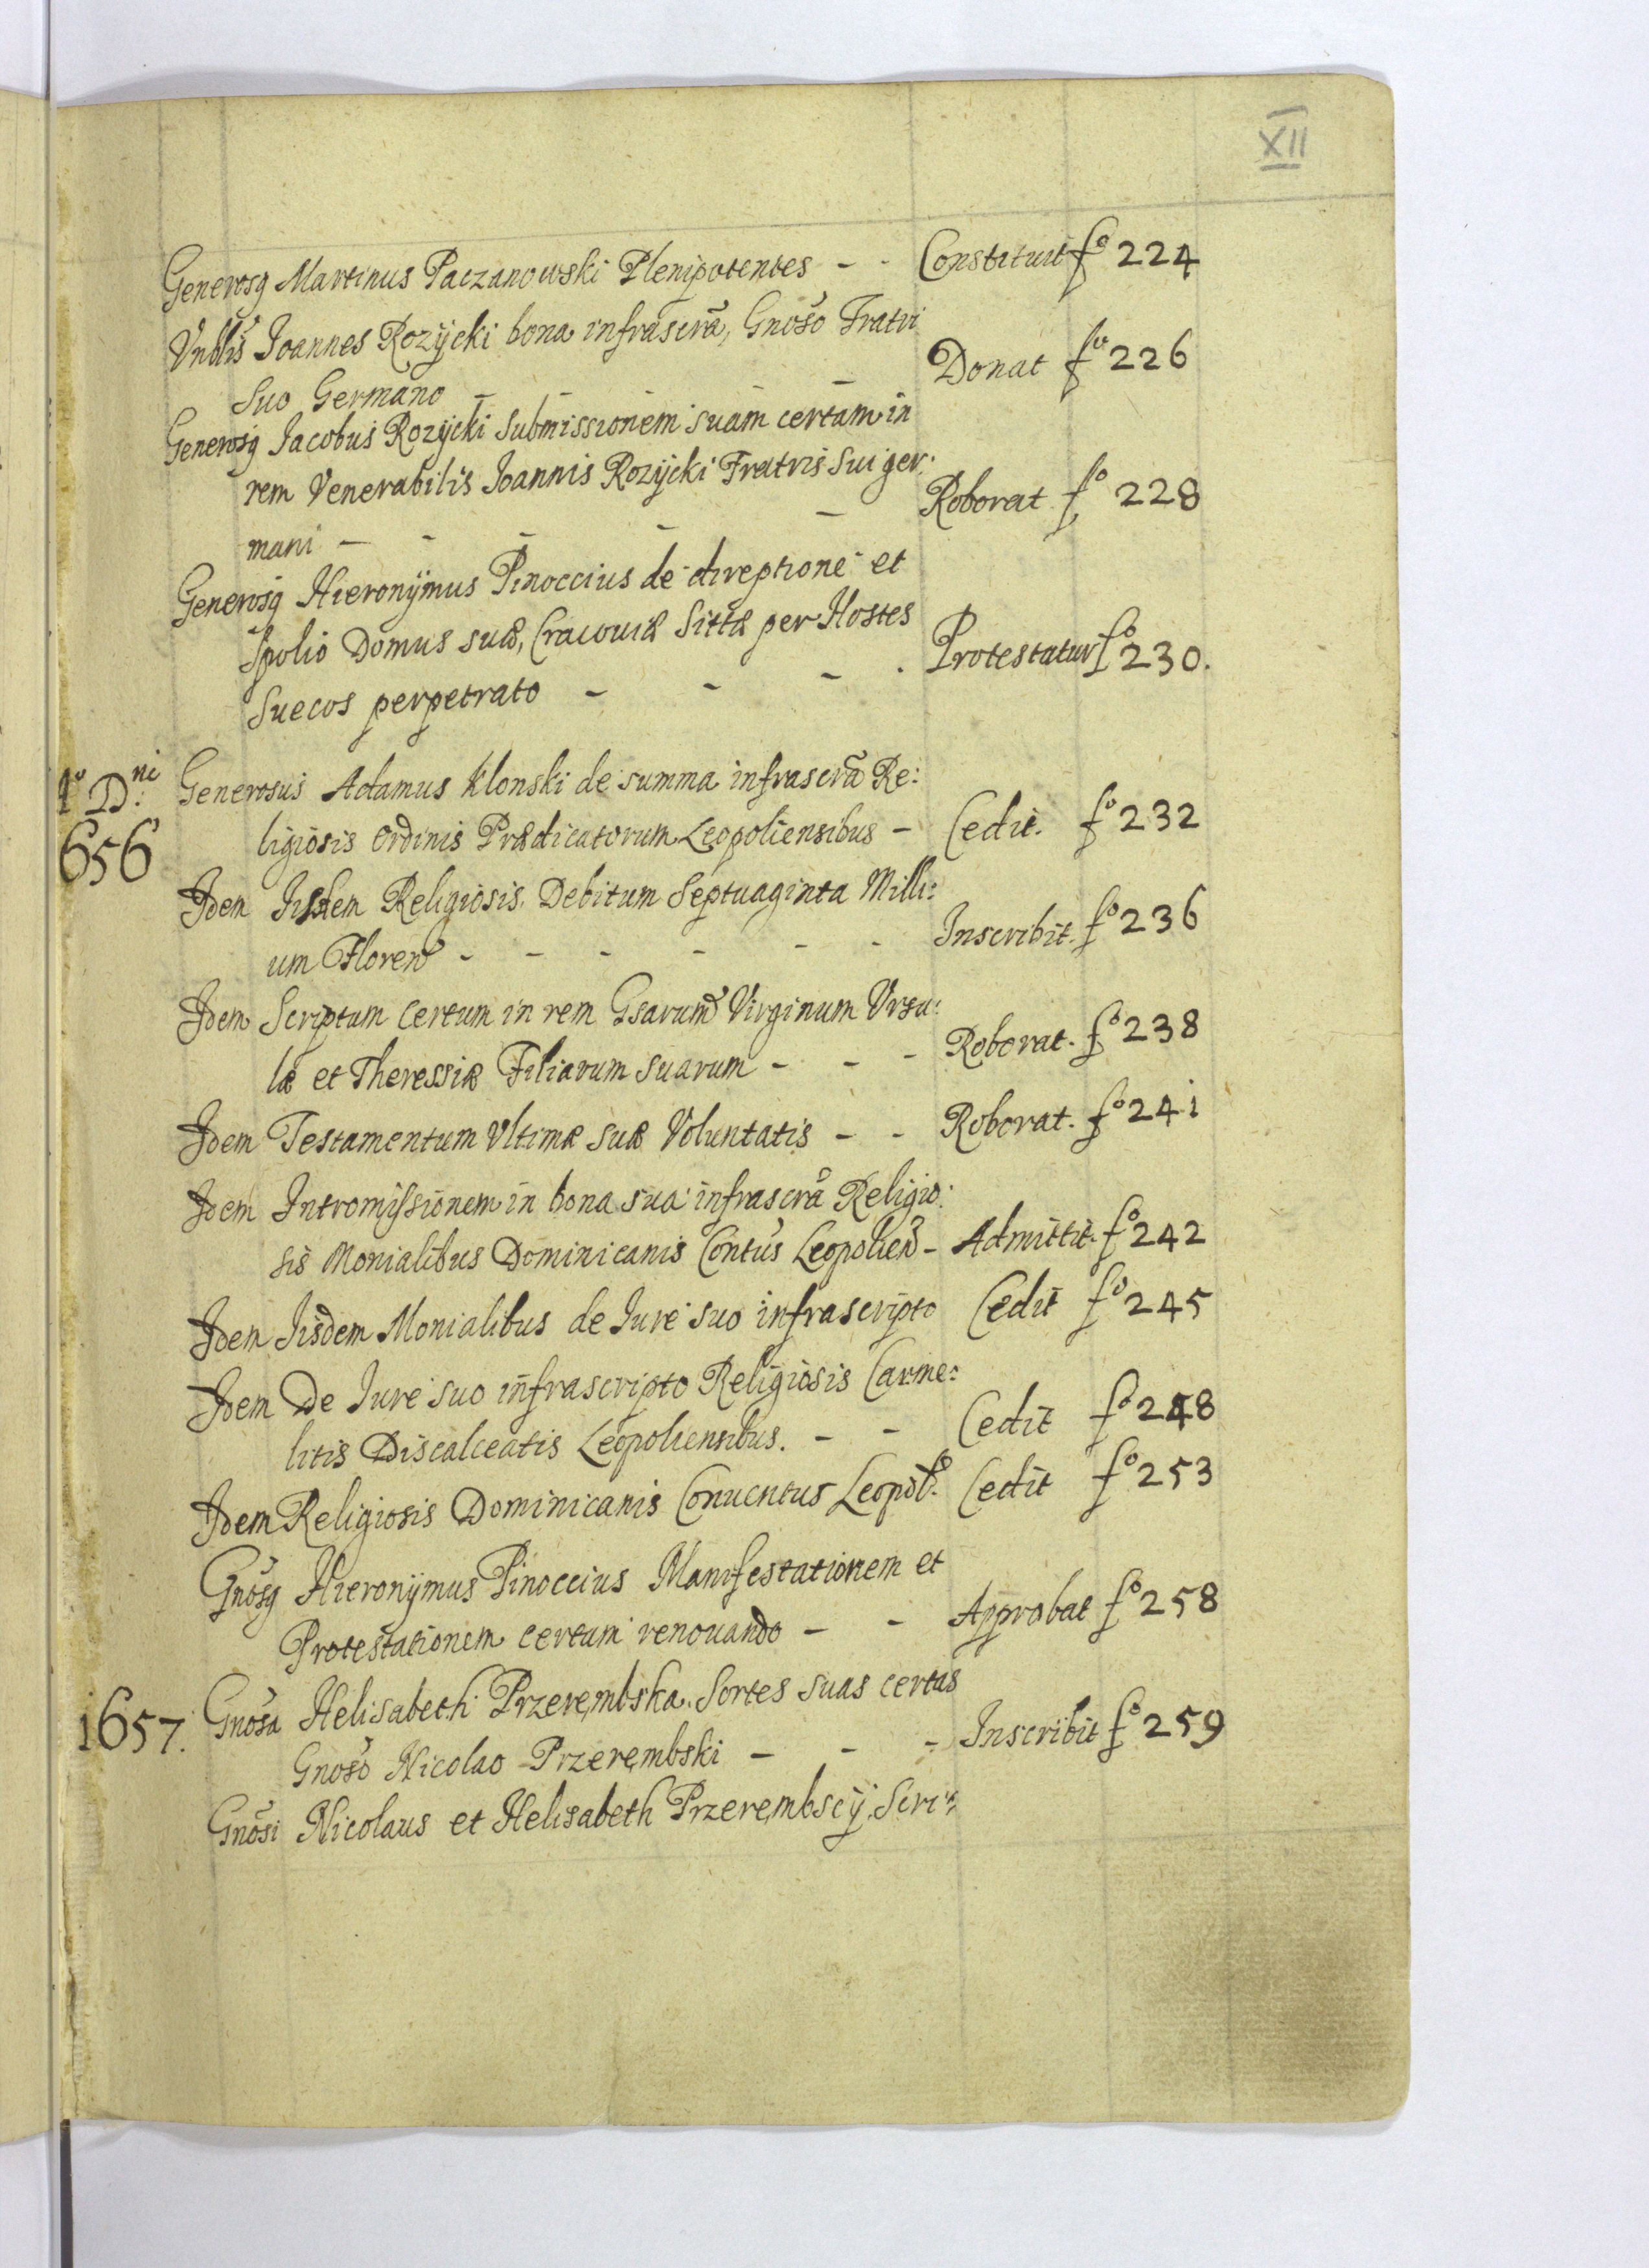 XII
Generosq Martinus Paczanowski Plenipotentes - - Constituit fo 224
Vnblis Joannes Rozycki bona infrascra, Gnoso Fratri
suo Germano - - - Donat fo 226
Generosq Jacobus Rozycki submissionem suam certam in
rem Venerabilis Joannis Rozycki Fratris sui ger:
mani - - - - - Roborat fo 228
Generosq Hieronymus Pinoccius de direptione et
spolio Domus suæ, Cracouiæ sittæ per Hostes
Suecos perpetrato - - - . Protestatur fo 230.
Ao Dni Generosus Adamus Klonski de summa infrascra Re:
656 ligiosis Ordinis Prædicatorum Leopoliensibus - Cedit. fo 232
Idem Iisdem Religiosis Debitum Septuaginta Milli:
um Floren - - - - - - Inscribit. fo 236
Idem Scriptum certum in rem Gsarum Virginum Vrsu:
læ et Theressiæ Filiarum suarum - - - Roborat. fo 238
Idem Testamentum Vltimæ suæ Voluntatis - - Roborat. fo 241
Idem Intromissionem in bona sua infrascra Religio:
sis Monialibus Dominicanis Contus Leopolien - Admittit. fo 242
Idem Iisdem Monialibus de Iure suo infrascripto Cedit fo 245
Idem De Iure suo infrascripto Religiosis Carme:
litis Discalceatis Leopoliensibus. - - Cedit fo 248
Idem Religiosis Dominicanis Conuentus Leopol. Cedit fo 253
Gnosq Hieronymus Pinoccius Manifestationem et
Protestationem certam renouando - - Approbat fo 258
1657. Gnosa Helisabeth Przerembska sortes suas certas
Gnoso Nicolao Przerembski - - - Inscribit fo 259
Gnosi Nicolaus et Helisabeth Przerembscy, Scri: